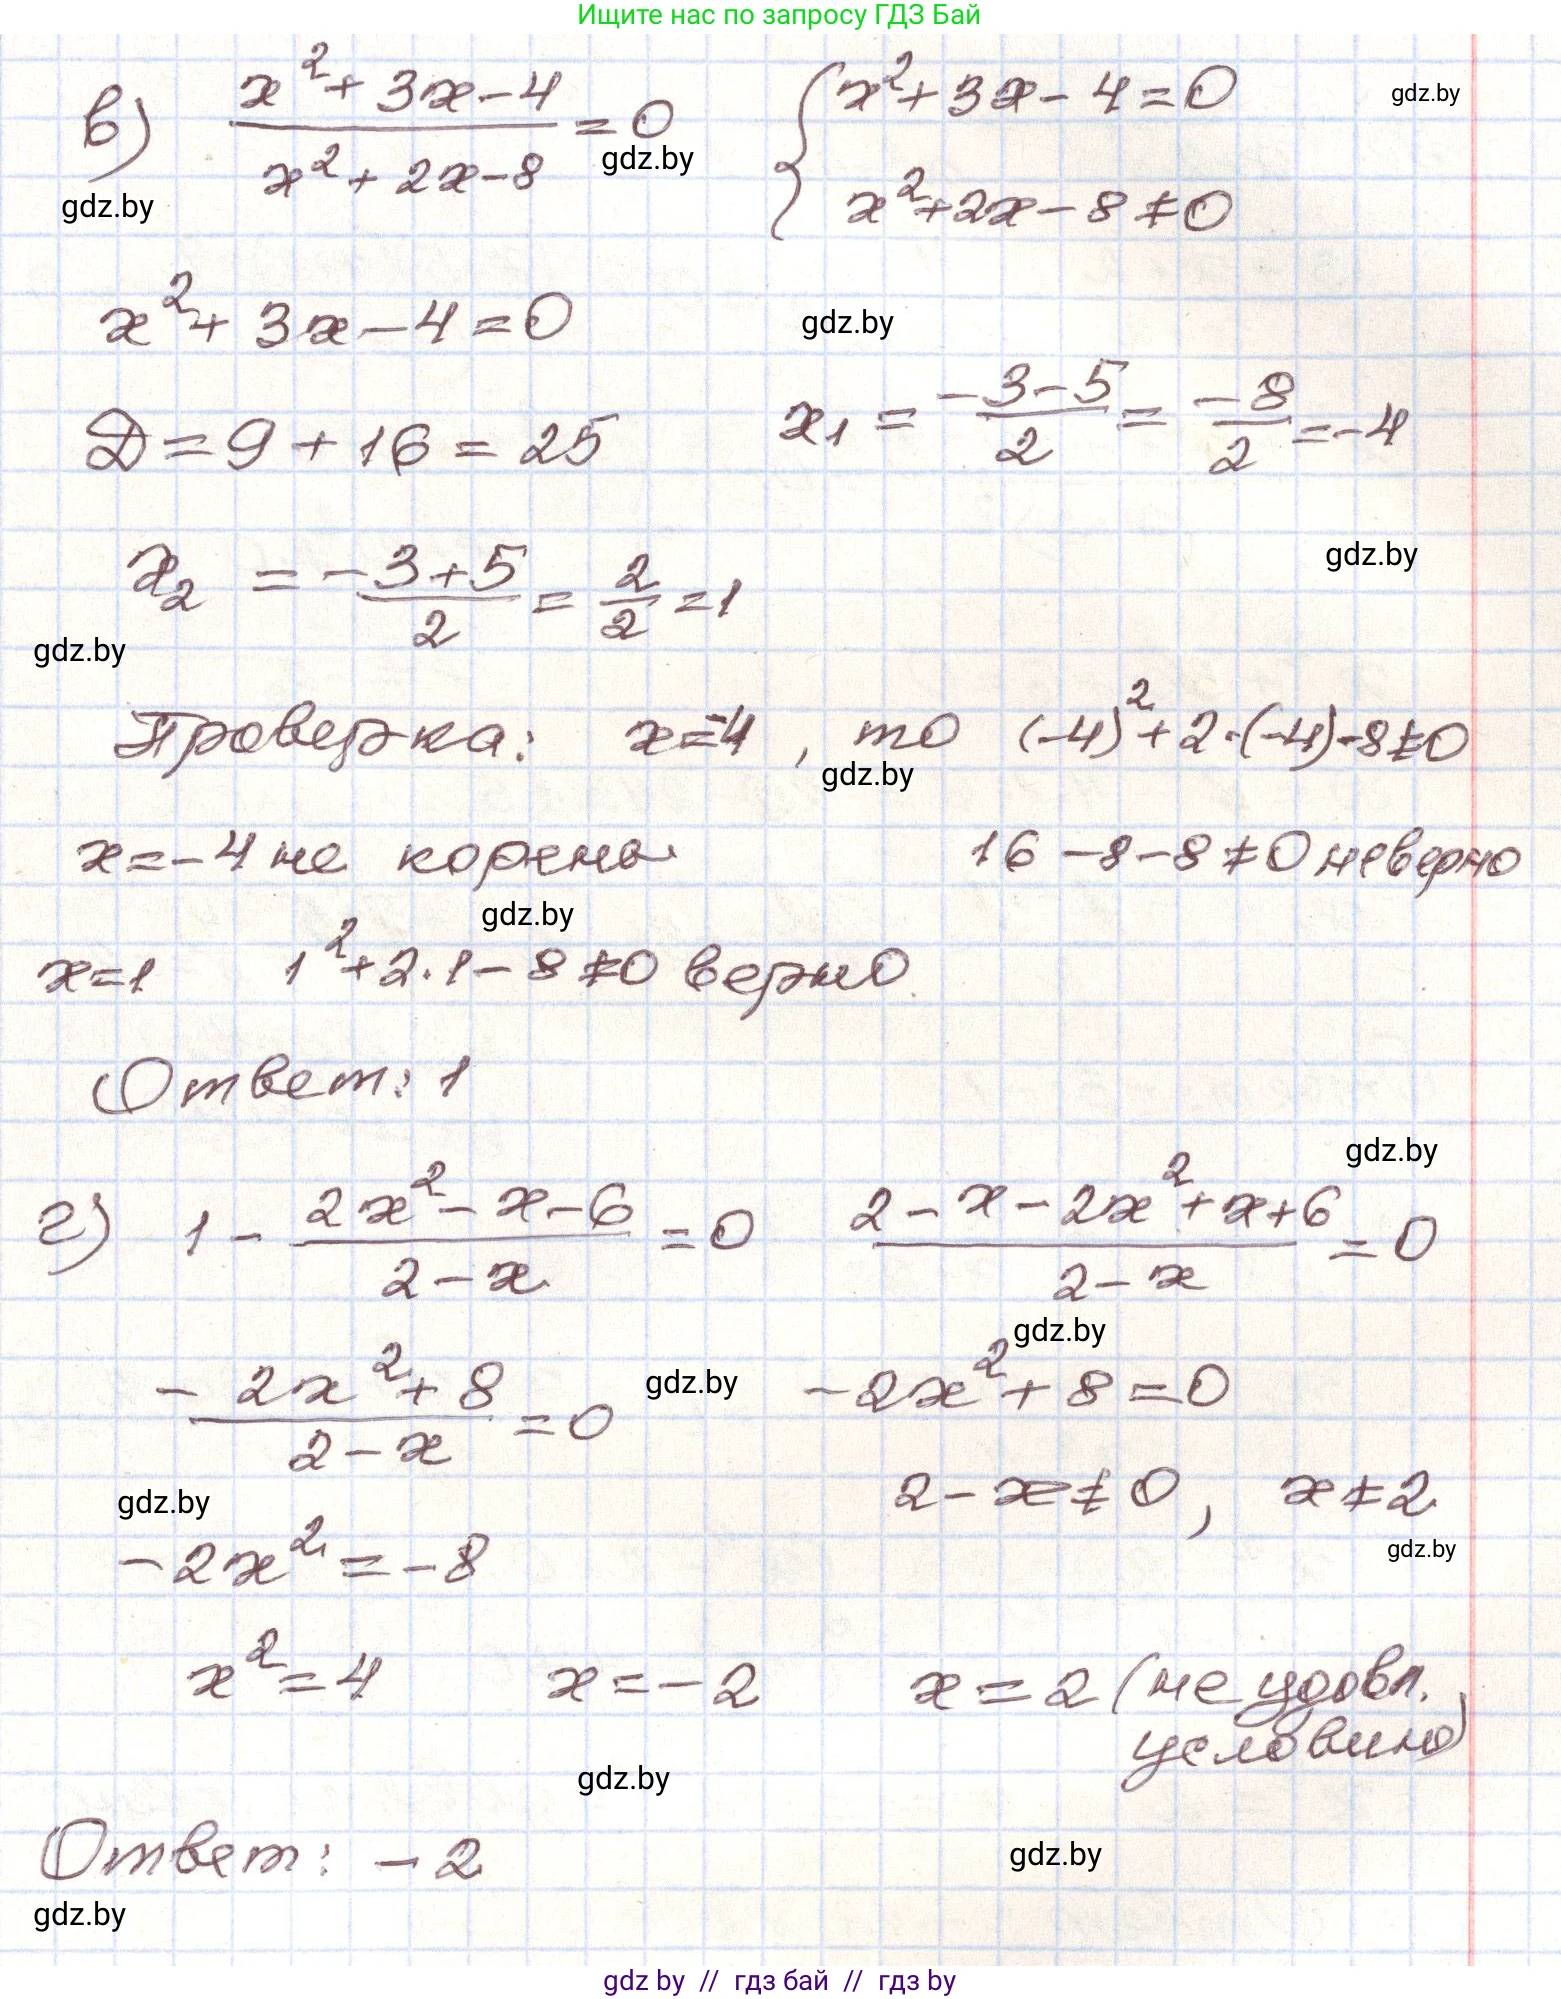 Ищите нас по запросу ГДЗ Бай
в) (x² + 3x - 4)/(x² + 2x - 8) = 0 { x² + 3x - 4 = 0 gdz.by
x² + 2x - 8 ≠ 0
gdz.by gdz.by
x² + 3x - 4 = 0 gdz.by
D = 9 + 16 = 25 x₁ = (-3-5)/2 = -8/2 = -4
x₂ = (-3+5)/2 = 2/2 = 1 gdz.by
gdz.by
Проверка: x = -4, то (-4)² + 2·(-4) - 8 ≠ 0
gdz.by
x = -4 не корень 16 - 8 - 8 ≠ 0 неверно
gdz.by
x = 1 1² + 2·1 - 8 ≠ 0 верно
Ответ: 1
gdz.by
г) 1 - (2x² - x - 6)/(2 - x) = 0 (2 - x - 2x² + x + 6)/(2 - x) = 0
gdz.by
(-2x² + 8)/(2 - x) = 0 gdz.by -2x² + 8 = 0
gdz.by 2 - x ≠ 0, x ≠ 2
gdz.by
-2x² = -8
x² = 4 x = -2 x = 2 (не удовл.
условию)
gdz.by
Ответ: -2 gdz.by
gdz.by
gdz by // гдз бай // гдз by